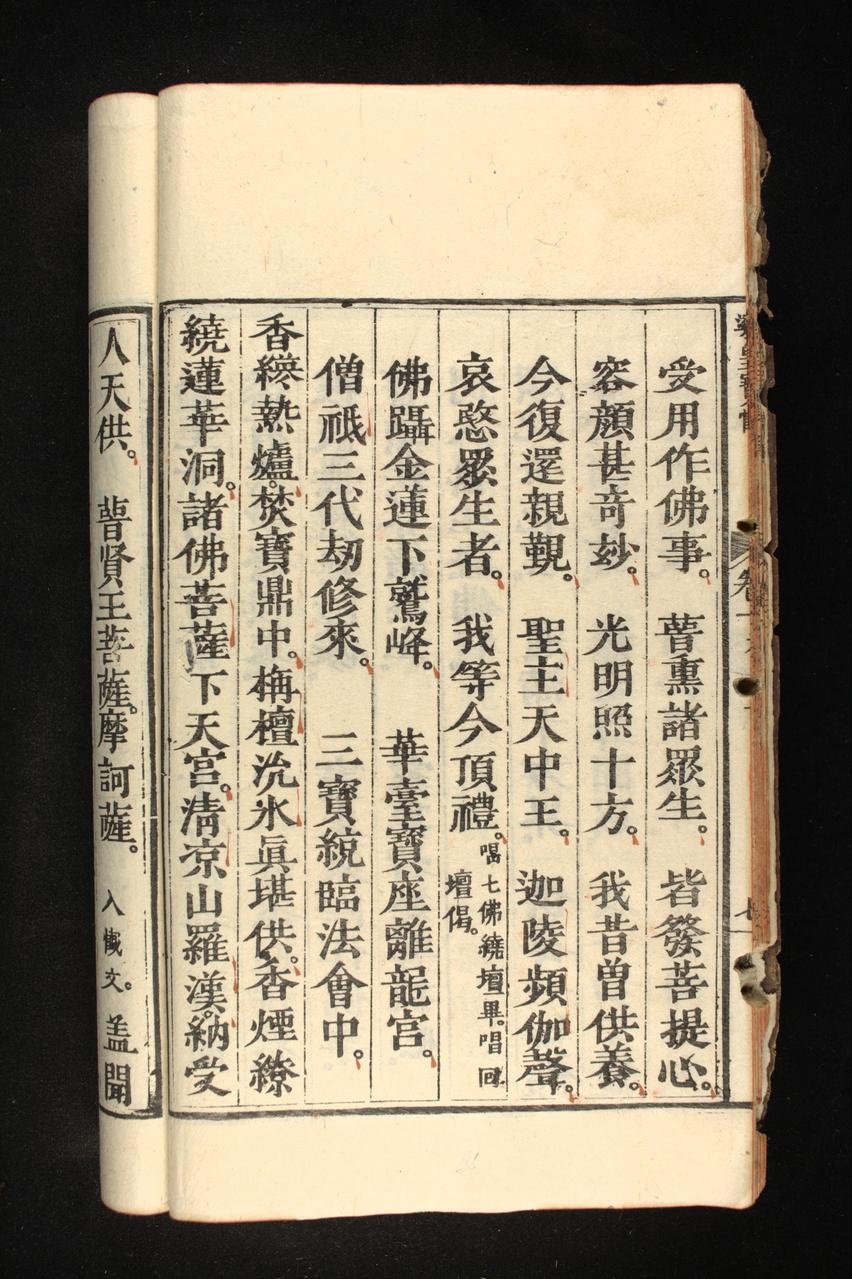 受用作佛事。 普熏諸眾生。 皆發菩提心。
容顏甚奇妙。 光明照十方。 我昔曾供養。
今復還親覲。 聖主天中王。 迦陵頻伽聲。
哀愍眾生者。 我等今頂禮。 唱七佛繞壇畢。唱回壇偈。
佛躡金蓮下鷲峰。 華臺寶座離龍宮。
僧祇三代劫修來。 三寶統臨法會中。
香纔熱爐。焚寶鼎中。栴檀沉氷眞堪供。香煙繚
繞蓮華洞。諸佛菩薩下天宮。清凉山羅漢。納受
人天供。 普賢王菩薩。摩訶薩。 入懺文。 盖聞
卷一